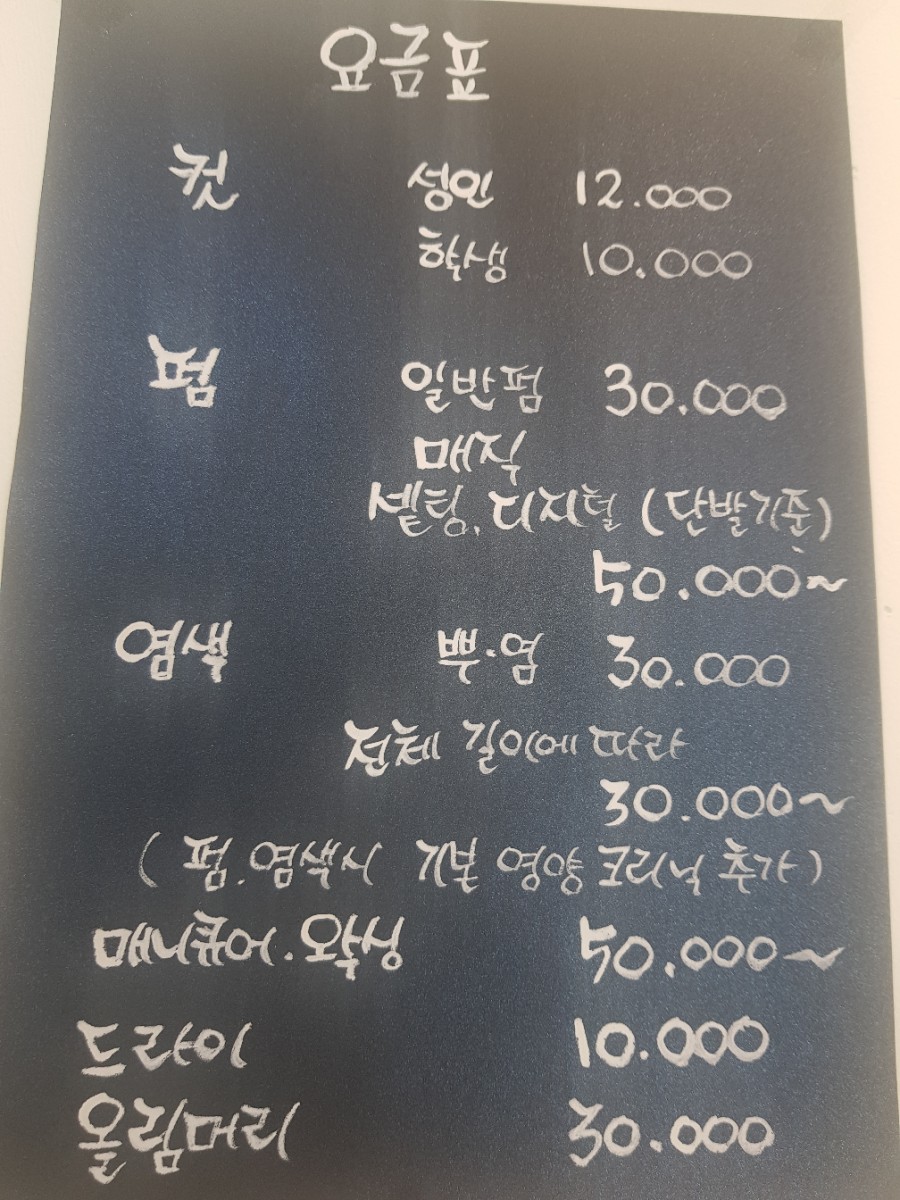 요금표
컷 성인 12.000
학생 10.000
펌 일반펌 30.000
매직
셑팅.디지털 (단발기준)
50.000~
염색 뿌.염 30.000
전체 길이에 따라
30.000~
( 펌.염색시 기본 영양 크리닉 추가)
매니큐어.왁싱 50.000~
드라이 10.000
올림머리 30.000